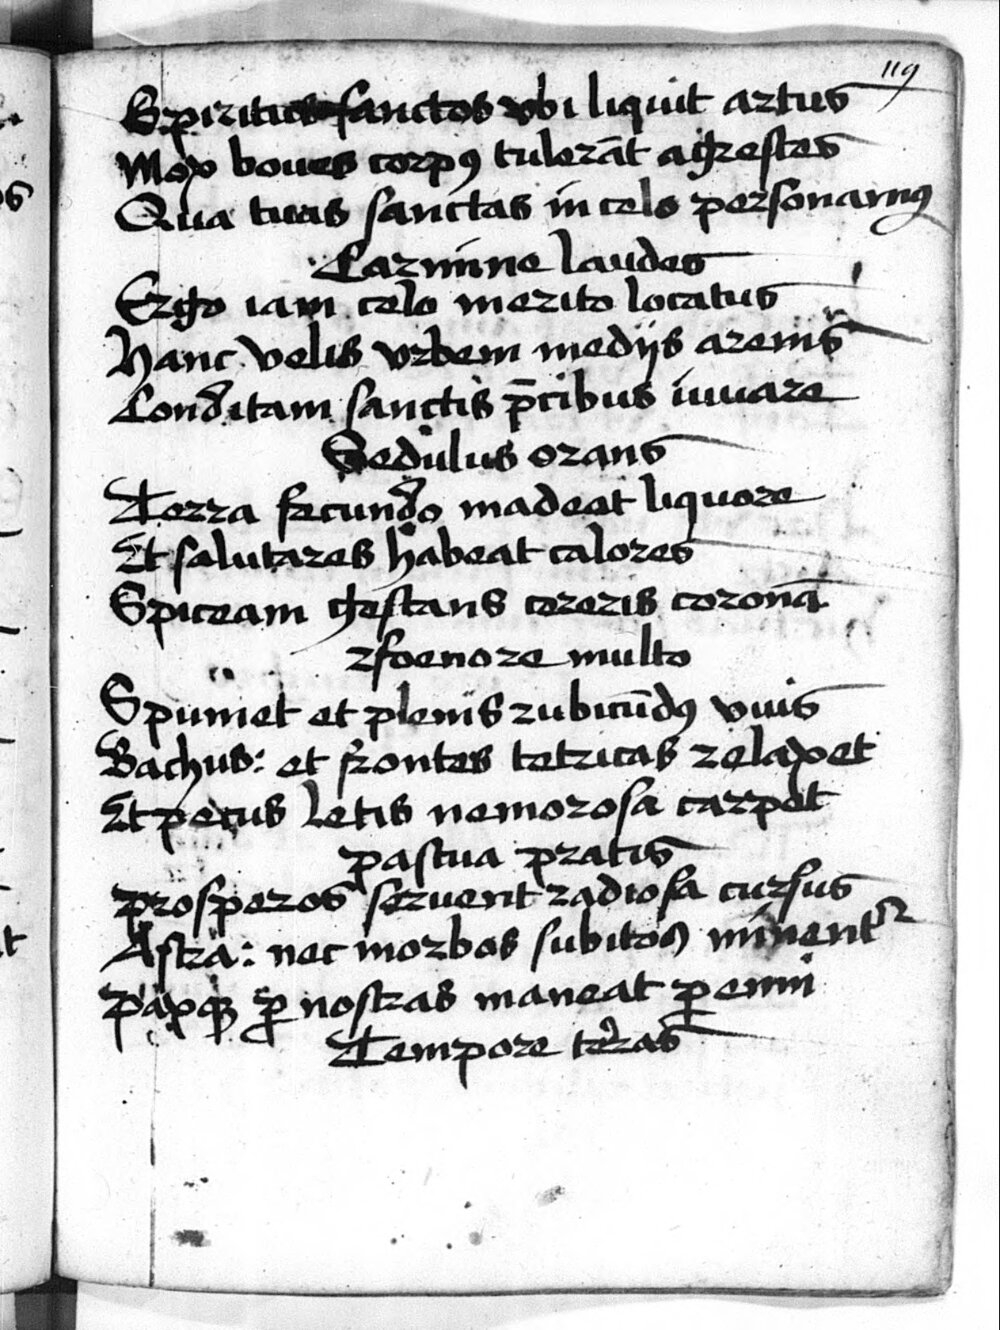 119
Spiritus sanctos vbi liquit artus
Mox boues corpꝰ tulerāt agrestes
Qua tuas sanctas in celo personamꝰ
Carmine laudes
Ergo iam celo merito locatus
Hanc velis vrbem medijs arenis
Conditam sanctis p̄cibus iuuare
Sedulus orans
Terra fecundo madeat liquore
Et salutares habeat calores
Spiceam gestans cereris coronā
foenore multo
Spumet et plenis rubicūdꝰ vuis
Bachus: et frontes tetricas relaxet
Et pecus letis nemorosa carpat
pascua pratis
prosperos seruent radiosa cursus
Astra: nec morbos subitos minent᷑
paxqꝫ ꝑ nostras maneat ꝑenni
Tempore terras